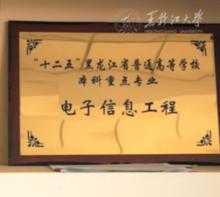 黑龙江大学
HEILONGJIANG UNIVERSITY
"十二五"黑龙江省普通高等学校
本科重点专业
电子信息工程